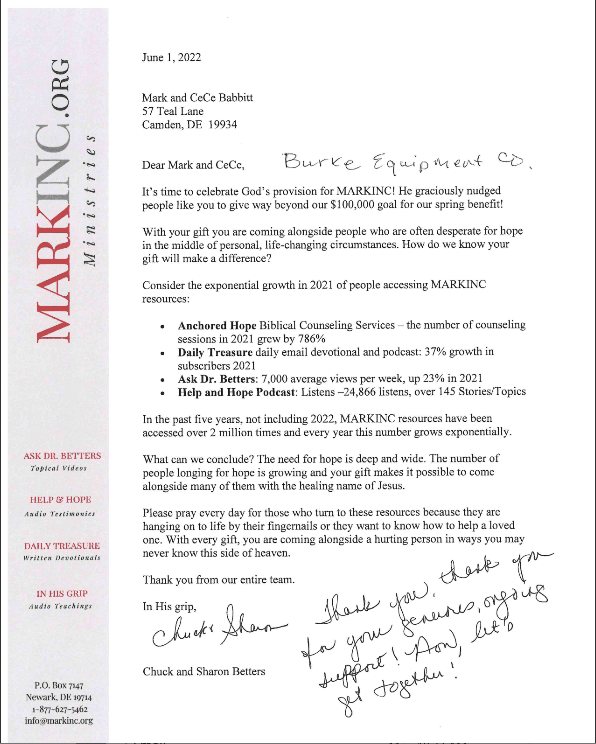 MARKINC.ORG
Ministries
ASK DR. BETTERS
Topical Videos
HELP & HOPE
Audio Testimonies
DAILY TREASURE
Written Devotionals
IN HIS GRIP
Audio Teachings
P.O. Box 7147
Newark, DE 19714
1-877-627-5462
info@markinc.org
June 1, 2022
Mark and CeCe Babbitt
57 Teal Lane
Camden, DE 19934
Dear Mark and CeCe, Burke Equipment Co.
It's time to celebrate God's provision for MARKINC! He graciously nudged
people like you to give way beyond our $100,000 goal for our spring benefit!
With your gift you are coming alongside people who are often desperate for hope
in the middle of personal, life-changing circumstances. How do we know your
gift will make a difference?
Consider the exponential growth in 2021 of people accessing MARKINC
resources:
• Anchored Hope Biblical Counseling Services – the number of counseling
sessions in 2021 grew by 786%
• Daily Treasure daily email devotional and podcast: 37% growth in
subscribers 2021
• Ask Dr. Betters: 7,000 average views per week, up 23% in 2021
• Help and Hope Podcast: Listens –24,866 listens, over 145 Stories/Topics
In the past five years, not including 2022, MARKINC resources have been
accessed over 2 million times and every year this number grows exponentially.
What can we conclude? The need for hope is deep and wide. The number of
people longing for hope is growing and your gift makes it possible to come
alongside many of them with the healing name of Jesus.
Please pray every day for those who turn to these resources because they are
hanging on to life by their fingernails or they want to know how to help a loved
one. With every gift, you are coming alongside a hurting person in ways you may
never know this side of heaven.
Thank you from our entire team.
In His grip,
Chuck & Sharon
Chuck and Sharon Betters
Thank you, thank you
for your generous, ongoing
support! Now, let's
get together!